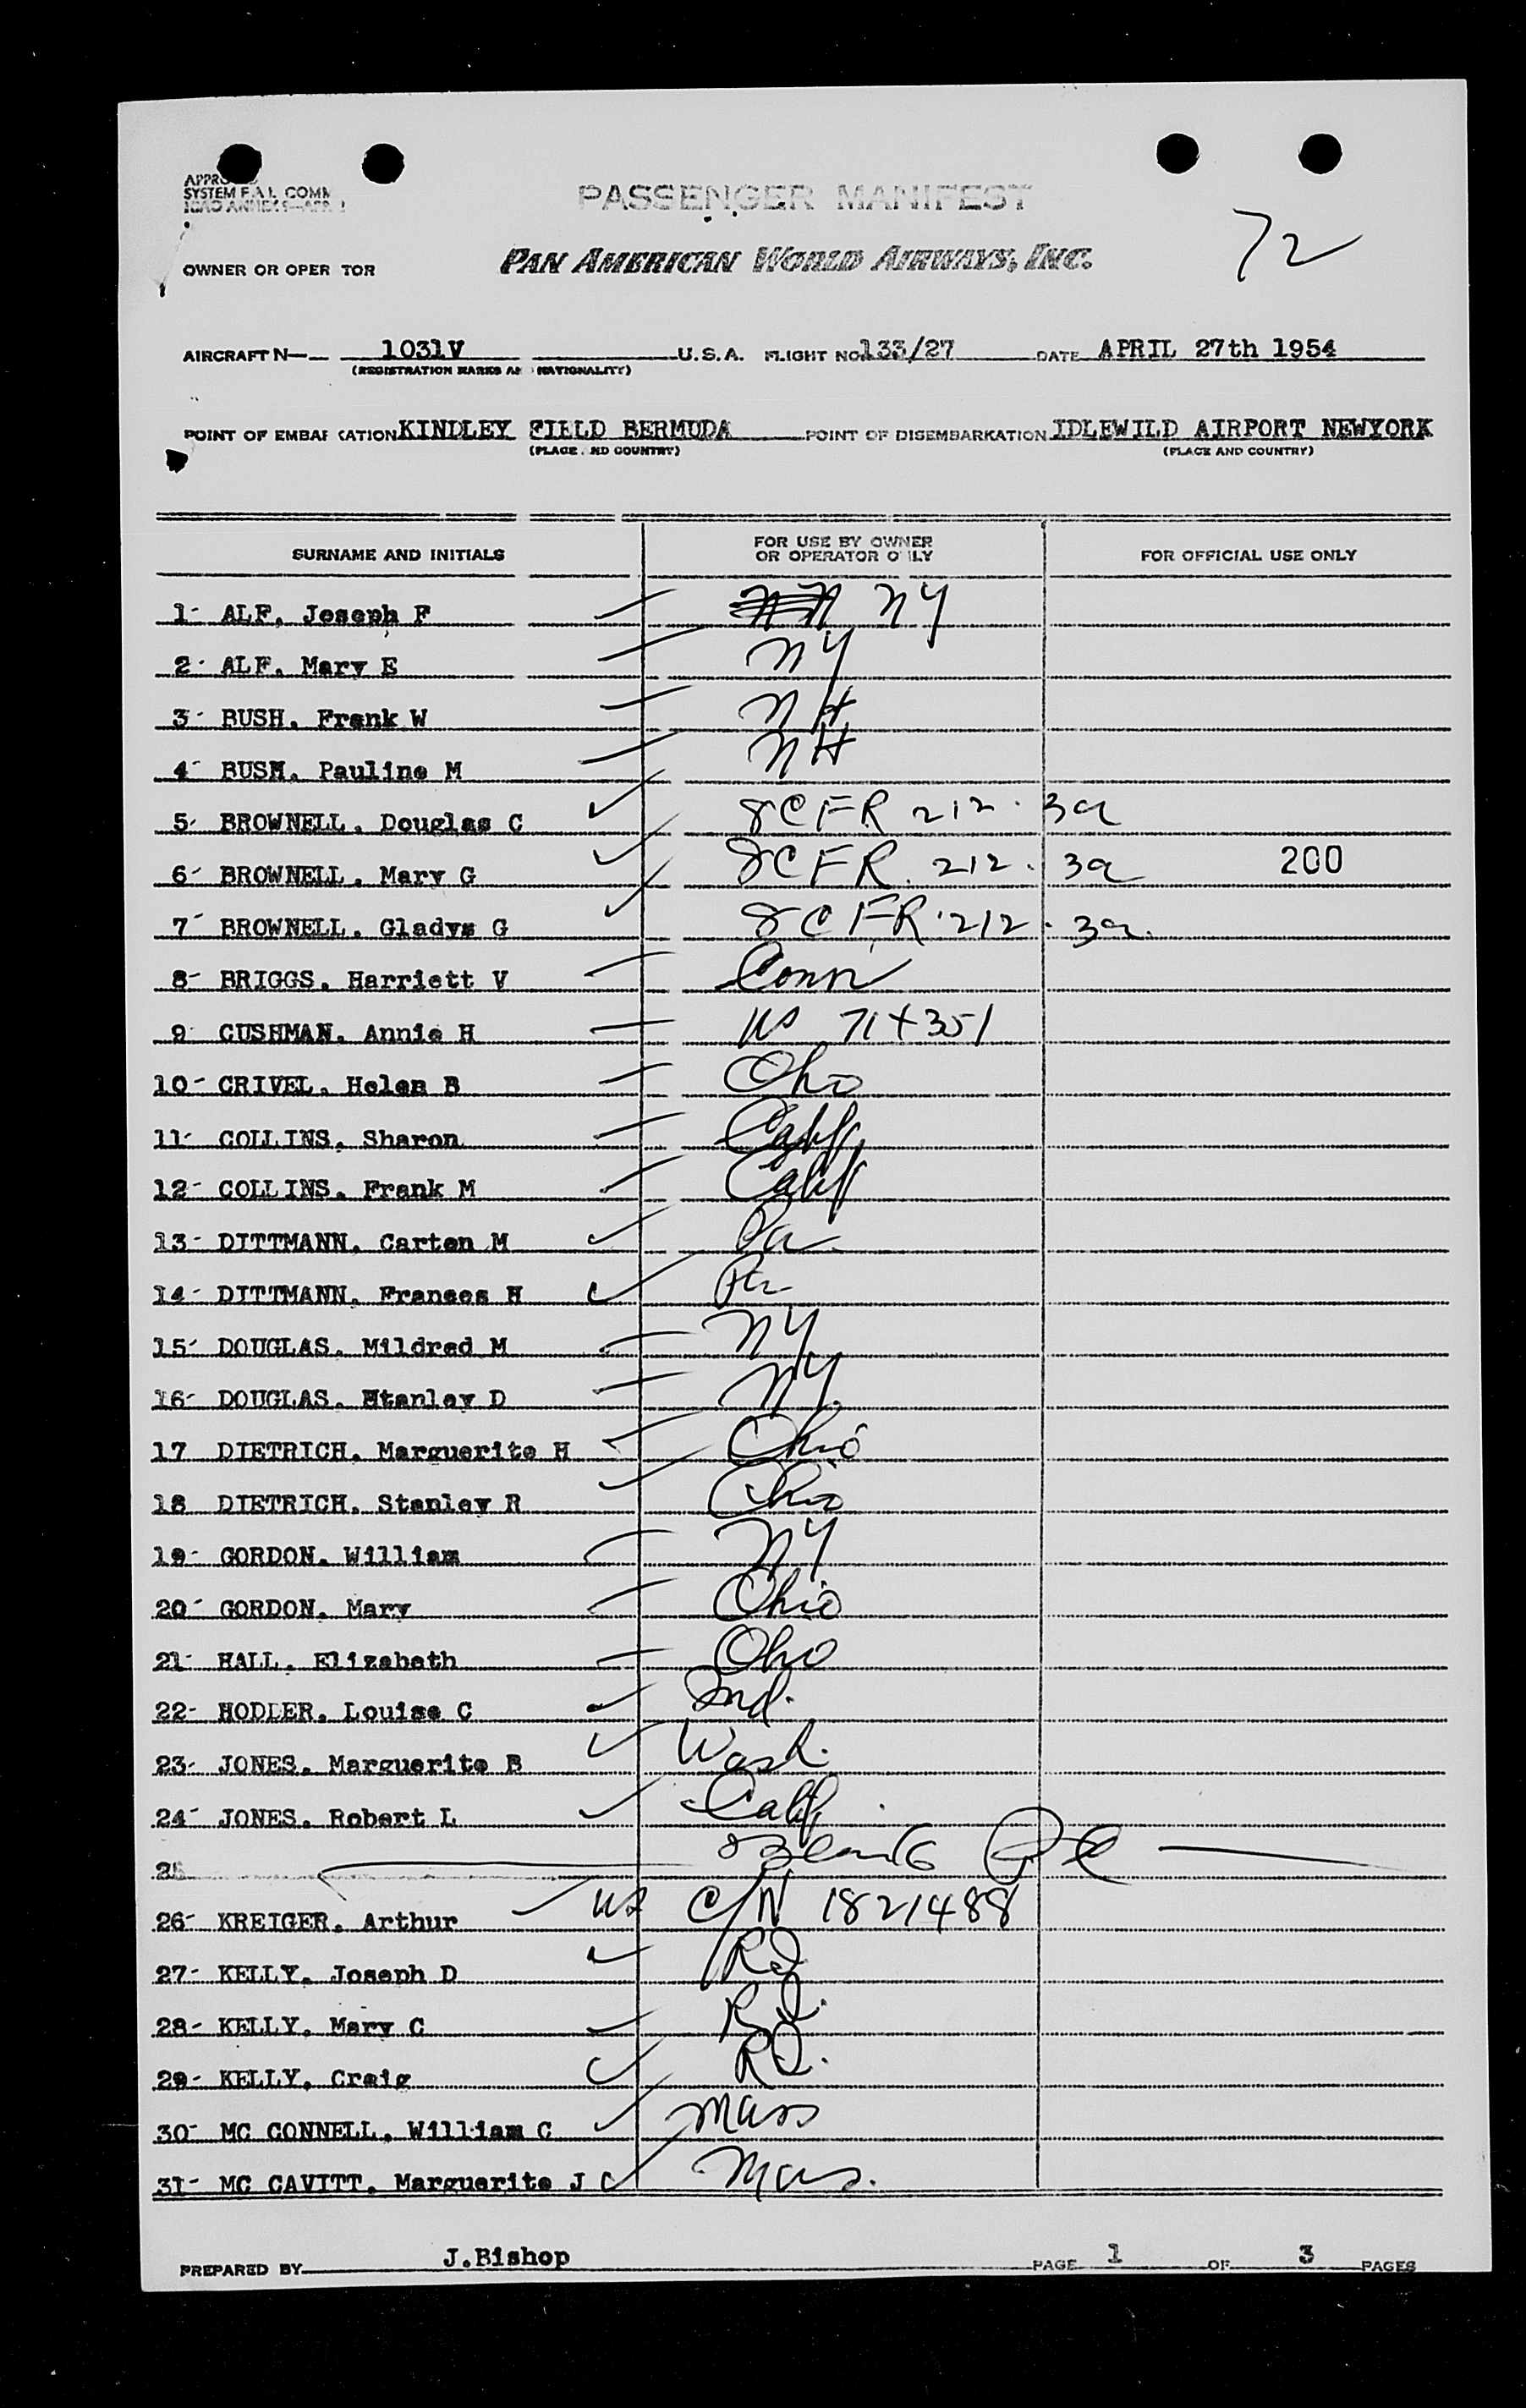 SYSTEM F.A.L. COMM
PASSENGER MANIFEST
72
OWNER OR OPER TOR PAN AMERICAN WORLD AIRWAYS, INC.
AIRCRAFT N— 1031V U.S.A. FLIGHT NO 133/27 DATE APRIL 27th 1954
(REGISTRATION MARKS AN NATIONALITY)
POINT OF EMBAR KATION KINDLEY FIELD BERMUDA POINT OF DISEMBARKATION IDLEWILD AIRPORT NEWYORK
(PLACE ND COUNTRY) (PLACE AND COUNTRY)
SURNAME AND INITIALS FOR USE BY OWNER OR OPERATOR O LY FOR OFFICIAL USE ONLY
1- ALF, Joseph F NY
2- ALF, Mary E NY
3- BUSH, Frank W NH
4- BUSH, Pauline M NH
5- BROWNELL, Douglas C 8CFR 212.3a
6- BROWNELL, Mary G 8CFR 212.3a 200
7- BROWNELL, Gladys G 8CFR 212.3a
8- BRIGGS, Harriett V Conn
9- CUSHMAN, Annie H US 714351
10- CRIVEL, Helen B Ohio
11- COLLINS, Sharon Calif
12- COLLINS, Frank M Calif
13- DITTMANN, Carton M Pa
14- DITTMANN, Frances H Pa
15- DOUGLAS, Mildred M NY
16- DOUGLAS, Stanley D NY
17 DIETRICH, Marguerite H Ohio
18 DIETRICH, Stanley R Ohio
19- GORDON, William NY
20- GORDON, Mary Ohio
21- HALL, Elizabeth Ohio
22- HODLER, Louise C Ind.
23- JONES, Marguerite B Wash.
24- JONES, Robert L Calif
25
26- KREIGER, Arthur US C/N 1821488
27- KELLY, Joseph D RI
28- KELLY, Mary C R.I.
29- KELLY, Craig RI.
30- MC CONNELL, William C Mass
31- MC CAVITT, Marguerite J Mas.
PREPARED BY J.Bishop PAGE 1 OF 3 PAGES